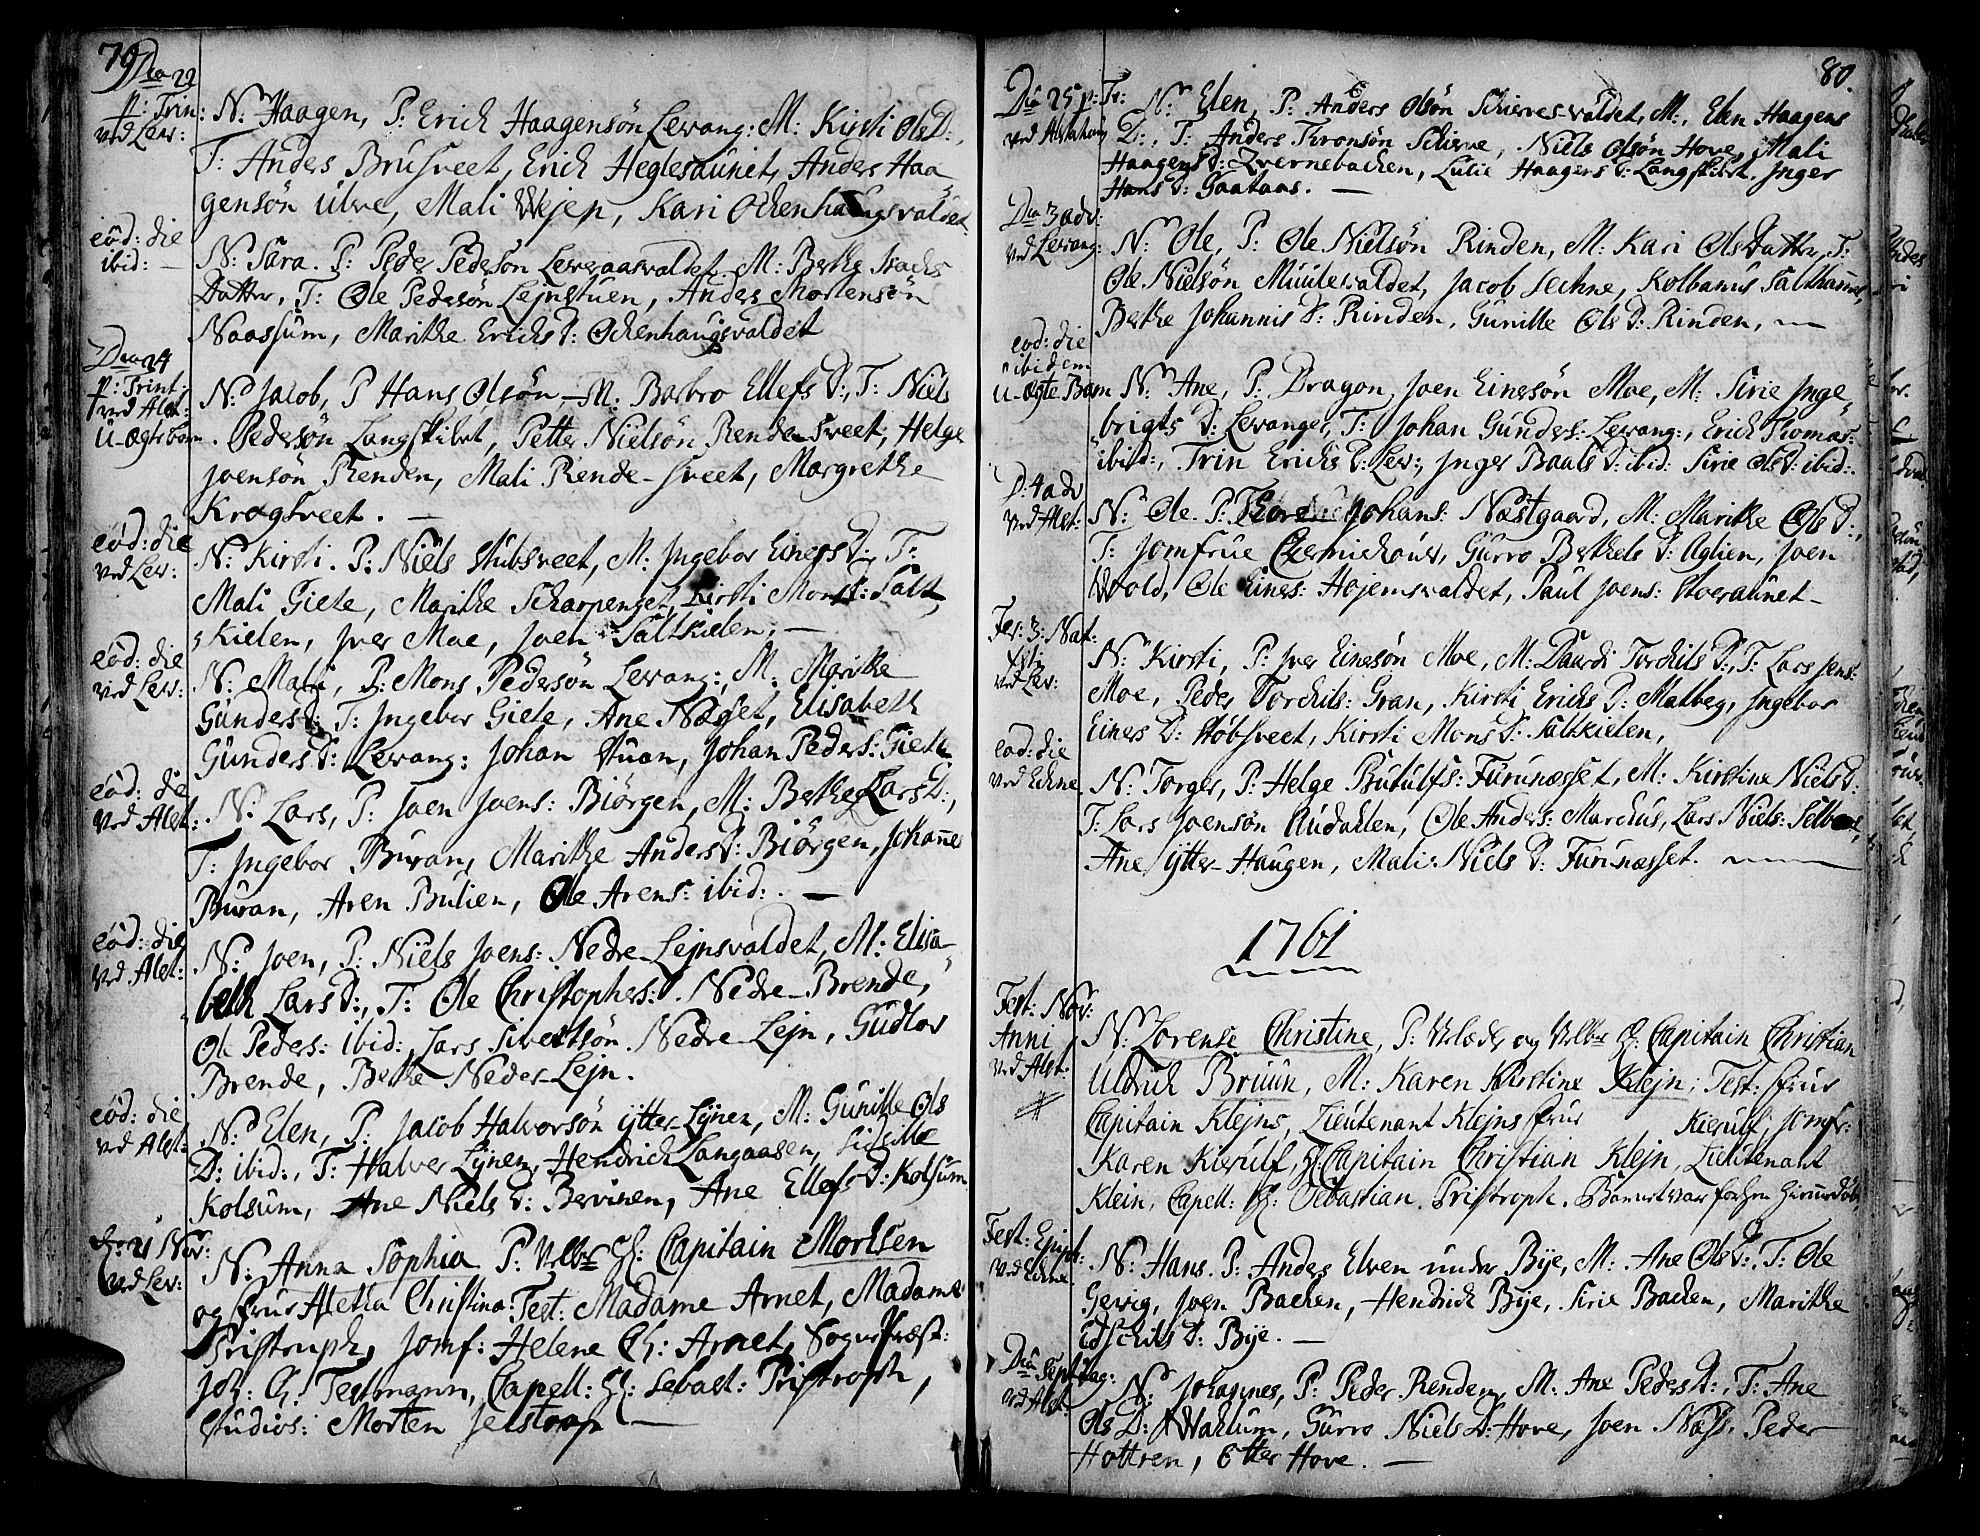 79
Dca 22
p: Trin:
ved Lev:
N: Haagen, P: Erich Haagensön Levang: M: Kirsti OlsD:,
T: Anders Brusveet, Erich Heglesaunet, Anders Haa
gensön Ulve, Mali Wejen, Kari Ockenhaugsvaldet.
eod: die
ibid: —
N: Sara. P: Peder Pedersön Leveraasvaldet. M: Berthe Isachs
Datter, T: Ole Pedersön Lejnstuen, Anders Mortensön
Naassum, Marithe ErichsD: Ockenhaugsvaldet
Dca 24
p: Trint:
ved Alst:
U-ægte Barn
N: Jacob, P Hans Olsön — M: Barbro EllefsD:, T: Niels
Pedersön Langskibet, Petter Nielsön Rende-sveet, Helge
Joensön Renden, Mali Rende-sveet, Margrethe
Krogsveet. —
eod: die
ved Lev:
N: Kirsti. P: Niels Stubsveet, M: Ingebor EinersD:, T:
Mali Giete, Marithe Scharpenget, Kirsti MonsD: Salt-
kielen, Iver Moe, Joen Saltkielen. —
eod: die
ved Lev:
N: Mali, P: Mons Pedersön Levang:, M: Marithe
GundersD: T: Ingebor Giete, Ane Næsset, Elisabeth
GundersD: Levang: Johan Stuan, Johan Peders: Giete.
eod: die
ved Alst:
N: Lars, P: Joen Joens: Biörgen, M: Berthe LarsD:,
T: Ingebor Buran, Marithe AndersD: Biörgen, Johane
Buran, Aren Bulien, Ole Arens: ibid: —
eod: die
ved Alst:
N: Joen, P: Niels Joens: Nedre-Lejnsvaldet, M: Elisa-
beth LarsD:, T: Ole Christophers: Nedre-Brende,
Ole Peders: ibid:, Lars Sivertsön Nedre Lejn, Gudlov
Brende, Berthe Neder-Lejn.
eod: die
ved Alst:
N: Elen, P: Jacob Halvorsön ytter-Lynen, M: Gunille Ols
D: ibid:, T: Halver Lynen, Hendrich Langaasen, Sidsille
Kolsum, Ane NielsD: Bervinen, Ane EllefsD: Kolsum
21 Nov:
ved Lev:
N: Anna Sophia P: Velbr H: Capitain Morksen
og frue Aletha Christina: Test: Madame Arnet, Madame
Pristruph, Jomf: Helene Ch: Arnet, Sognepræst:
Joh: Ch: Testmann, Capell: H: Sebast: Pristroph,
Studios: Morten Jelstrop —
80.
Dca 25 p: Tr:
ved Alstahoug
N: Elen, P: Anders Olsön Schierves-valdet, M:, Elen Haagens
D:, T: Anders Tronsön Schierve, Niels Olsön Hove, Mali
HaagensD: Qvernebachen, Lulie HaagensD: Langskibet. Inger
HansD: Gaataas. —
Dca 3 adv:
ved Levang:
N: Ole, P: Ole Nielsön Rinden, M: Kari OlsDatter, T:
Ole Nielsön Muulevaldet, Jacob Lechne, Kolbanus Salthamer,
Berthe JohannisD: Rinden, Gunille OlsD: Rinden, —
eod: die
ibidem
U-ægte Barn
N: Ane, P: Dragon Joen Einersön Moe, M: Sirie Inge
brigtsD: Levanger, T: Johan Gunders: Levang:, Erich Thomas:
ibid:, Trin ErichsD: Lev:, Inger BaalsD: ibid: Sirie OlsD: ibid:.
D: 4 adv
ved Alst:
N: Ole P: Thore Johans: Næstgaard, M: Marithe OlsD:,
T: Jomfrue Czernichows, Gurro BerthelsD: Aglien, Joen
Wold, Ole Einers: Hojemsvaldet, Paul Joens: Stoeraunet —
Fer: 3: Nat:
Xsti
ved Lev:
N: Kirsti, P: Iver Einersön Moe, M: Daardi TorchilsD:, T: Lars Jens:
Moe, Peder Torchils: Gran, Kirsti ErichsD: Malbeg, Ingebor
EinersD: Stobsveet, Kirsti MonsD: Saltkielen,
eod: die
ved Echne
N: Torger, P: Helge Butulfs: Furunæsset, M: Kirstine NielsD:
T: Lars Joensön Audahlen, Ole Anders: Marchus, Lars Niels: Selboe,
Ane ytter-Haugen, Mali NielsD: Furunæsset. —
1761
Fest: Nov:
Anni
ved Alst:
N: Lorense Christine, P: Velædle og Velbr H: Capitain Christian
Uldrich Bruun, M: Karen Kirstine Klejn; Test: frue
Capitain Klejns, Lieutenant Klejns frue Kierulf, Jomfr:
Karen Kierulf, H: Capitain Christian Klejn, Lieutenant
Klein, Capell: H: Sebastian Pristroph.
Fest: Epiph:
ved Echne
N: Hans. P: Anders Elven under Bye, M: Ane OlsD: T: Ole
Gevig, Joen Bachen, Hendrich Bye, Sirie Bachen, Marithe
EdschilsD: Bye. —
Dca Septuag:
ved Alst:
N: Johannes, P: Peder Renden, M: Ane PedersD:, T: Ane
OlsD: Wahlum, Gurro NielsD: Hove, Joen Næss. Peder
Hottren, Etter Hove. —